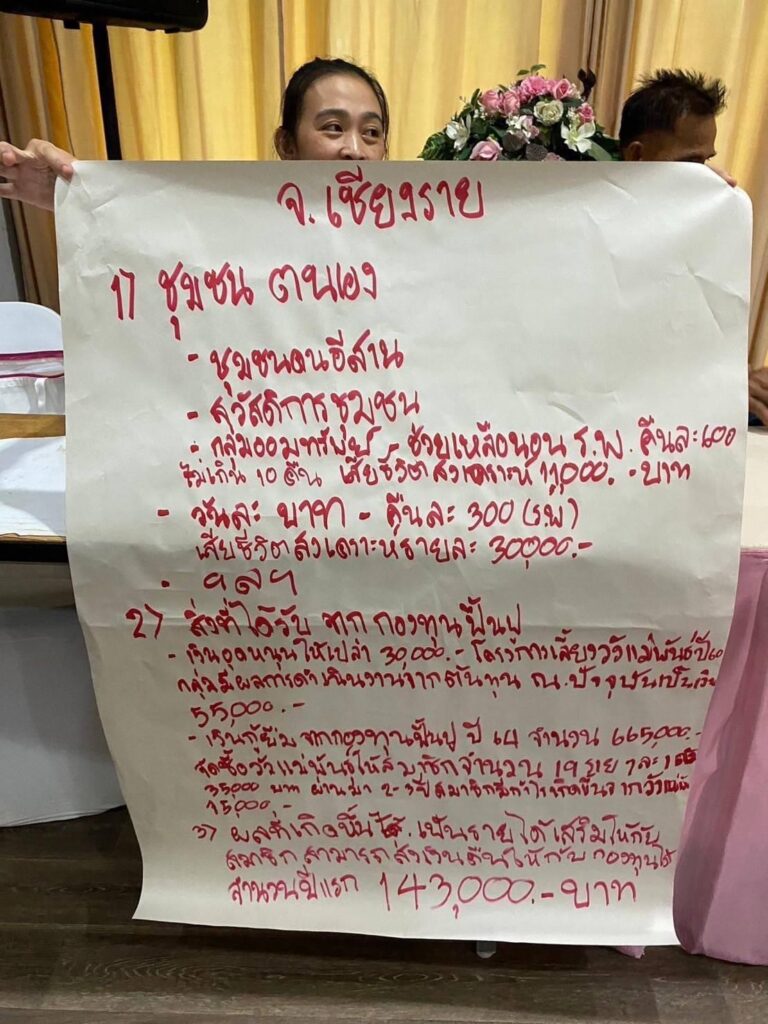 จ. เชียงราย
1) ชุมชน ตนเอง
- ชุมชนคนอีสาน
- สวัสดิการชุมชน
- กลุ่มออมทรัพย์ - ช่วยเหลือนอน ร.พ. คืนละ 600
ไม่เกิน 10 คืน เสียชีวิตสงเคราะห์ 11,000.- บาท
- วันละ บาท - คืนละ 300 (ร.พ)
เสียชีวิตสงเคราะห์รายละ 30,000.-
- ฯลฯ
2) สิ่งที่ได้รับ จาก กองทุนฟื้นฟู
- เงินอุดหนุนให้เปล่า 30,000.- โครงการเลี้ยงวัวแม่พันธุ์ปี 60
กลุ่มมีผลการดำเนินงานจากต้นทุน ณ.ปัจจุบันเป็นเงิน
55,000.-
- เงินกู้ยืม จากกองทุนฟื้นฟู ปี 64 จำนวน 665,000.-
จัดซื้อวัวแม่พันธุ์ให้สมาชิกจำนวน 19 ราย ๆ ละ
35,000 บาท ผ่านมา 2-3 ปี สมาชิกมีกำไรเกิดขึ้นจากวัว
15,000.-
3) ผลที่เกิดขึ้น เป็นรายได้เสริมให้กับ
สมาชิก สามารถส่งเงินคืนให้กับ กองทุนได้
จำนวนปีแรก 143,000.- บาท